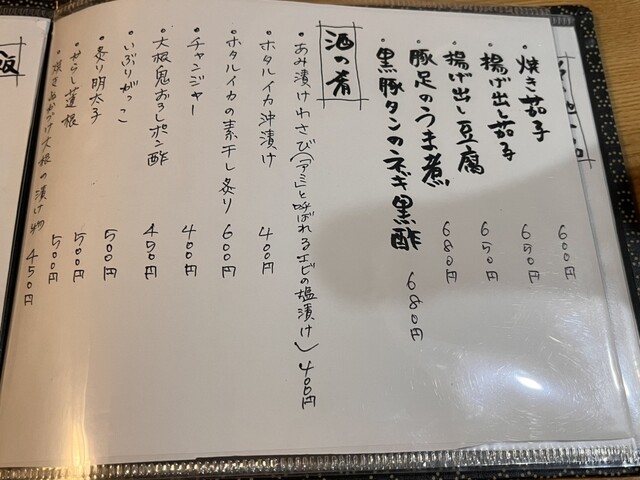 ・焼き茄子 600円
・揚げ出し茄子 650円
・揚げ出し豆腐 650円
・豚足のうま煮 680円
・黒豚タンのネギ黒酢 680円
酒の肴
・あみ漬けわさび(「アミ」と呼ばれるエビの塩漬け) 400円
・ホタルイカ沖漬け 400円
・ホタルイカの素干し炙り 600円
・チャンジャー 400円
・大根鬼おろしポン酢 450円
・いぶりがっこ 500円
・炙り明太子 500円
・からし蓮根 500円
・焼き 大根の漬け物 450円
飯